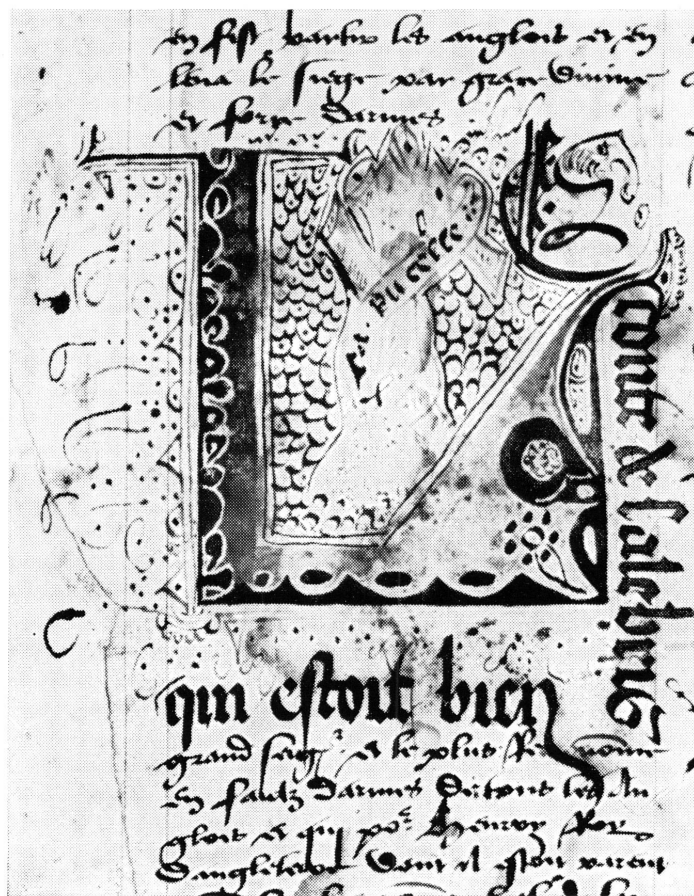 en fist partir les anglois et en
leva le siege par grace divine
et force darmes
La pucelle
Le
conte de Salebris
qui estoit bien
grand seigr et le plus renome
en faitz darmes de tout les An
glois et qui por Henry Roy
Dangleterre dont il estoit parent